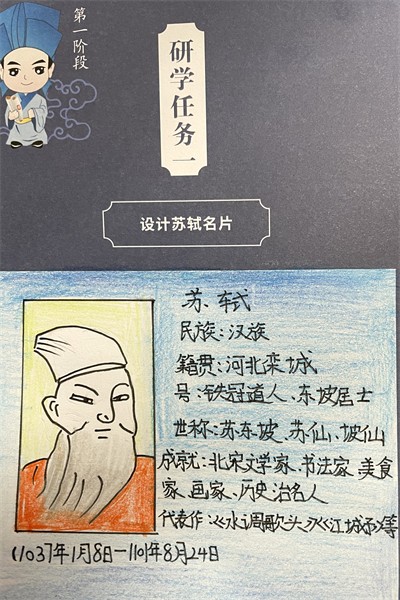 第一阶段
研学任务一
设计苏轼名片
苏轼
民族:汉族
籍贯:河北栾城
号:铁冠道人、东坡居士
世称:苏东坡、苏仙、坡仙
成就:北宋文学家、书法家、美食
家、画家、历史治名人
代表作:《水调歌头》《江城子》等
(1037年1月8日—1101年8月24日